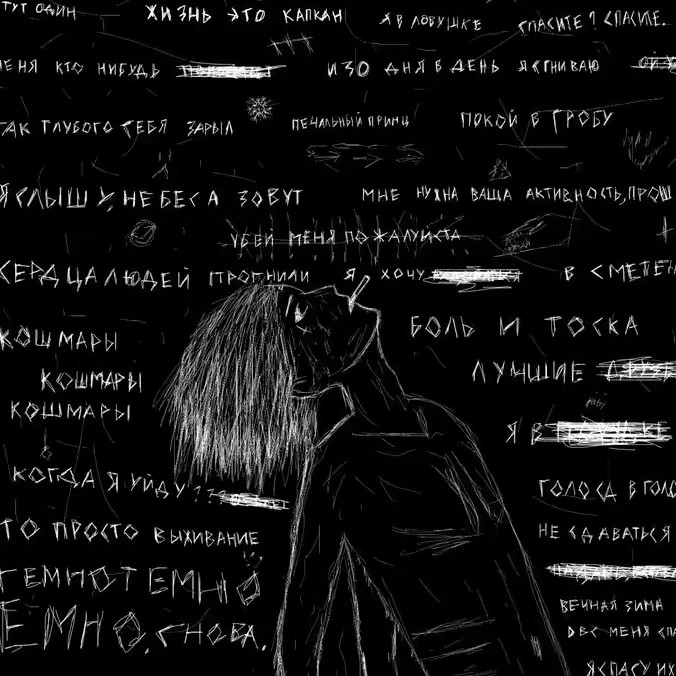 ТУТ ОДИН ЖИЗНЬ ЭТО КАПКАН Я В ЛОВУШКЕ СПАСИТЕ? СПАСИТЕ.
МЕНЯ КТО НИБУДЬ ИЗО ДНЯ В ДЕНЬ Я СГНИВАЮ
ТАК ГЛУБОГО СЕБЯ ЗАРЫЛ ПЕЧАЛЬНЫЙ ПРИНЦ ПОКОЙ В ГРОБУ
Я СЛЫШУ, НЕБЕСА ЗОВУТ МНЕ НУЖНА ВАША АКТИВНОСТЬ, ПРОШ
УБЕЙ МЕНЯ ПОЖАЛУЙСТА
СЕРДЦА ЛЮДЕЙ ПРОГНИЛИ Я ХОЧУ В СМЕТЕН
БОЛЬ И ТОСКА
КОШМАРЫ
ЛУЧШИЕ
КОШМАРЫ
КОШМАРЫ
Я В
КОГДА Я УЙДУ???
ГОЛОСА В ГОЛО
ТО ПРОСТО ВЫЖИВАНИЕ
НЕ СДАВАТЬСЯ
ТЕМНО ТЕМНО
ВЕЧНАЯ ЗИМА
ЕМНО, СНОВА.
МЕНЯ СПА
Я СПАСУ ИХ